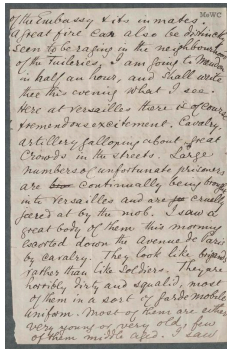 MeWC
of the Embassy & its inmates.
A great fire can also be distinctly
seen to be raging in the neighbourhood
of the Tuileries, I am going to Meudon
in half an hour, and shall write
thee this evening what I see.
Here at Versailles there is of course
tremendous excitement. Cavalry,
artillery galloping about, great
crowds in the streets. Large
numbers of unfortunate prisoners
are continually being brought
into Versailles and are cruelly
jeered at by the mob. I saw a
great body of them this morning
escorted down the Avenue de Paris
by cavalry. They look like brigands
rather than like soldiers. They are
horribly dirty and squalid, most
of them in a sort of garde mobile
uniform. Most of them are either
very young or very old, few
of them middle aged. I saw